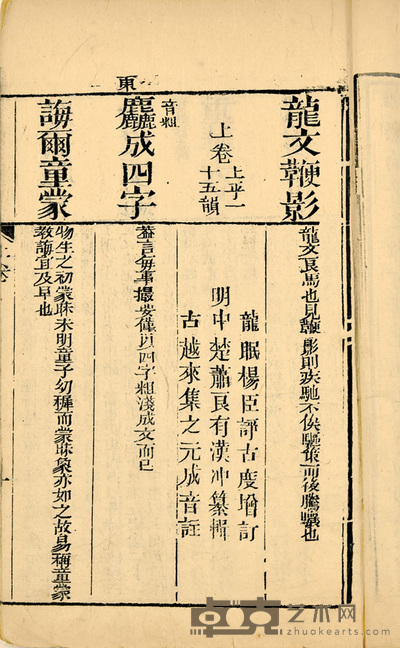 龍文鞭影
龍文良馬也見鞭影則疾馳不俟驅策而後騰驤也
上卷 上平一十五韻
龍眠楊臣諍古度增訂
明中楚蕭良有漢冲纂輯
古越來集之元成音註
東
麤成四字
音粗
蓋言每事撮要僅以四字粗淺成文而已
誨爾童蒙
物生之初蒙昧未明童子幼穉而蒙昧象亦如之故易稱童蒙
教誨宜及早也
上卷
卓克艺术网
www.zhuokearts.com